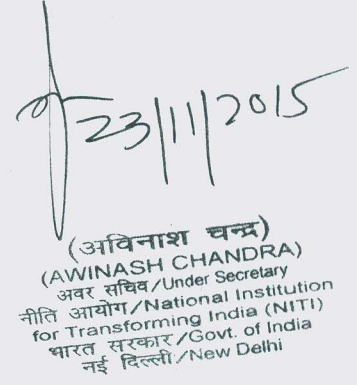 23/11/2015
(अविनाश चन्द्र)
(AWINASH CHANDRA)
अवर सचिव/Under Secretary
नीति आयोग/National Institution
for Transforming India (NITI)
भारत सरकार/Govt. of India
नई दिल्ली/New Delhi